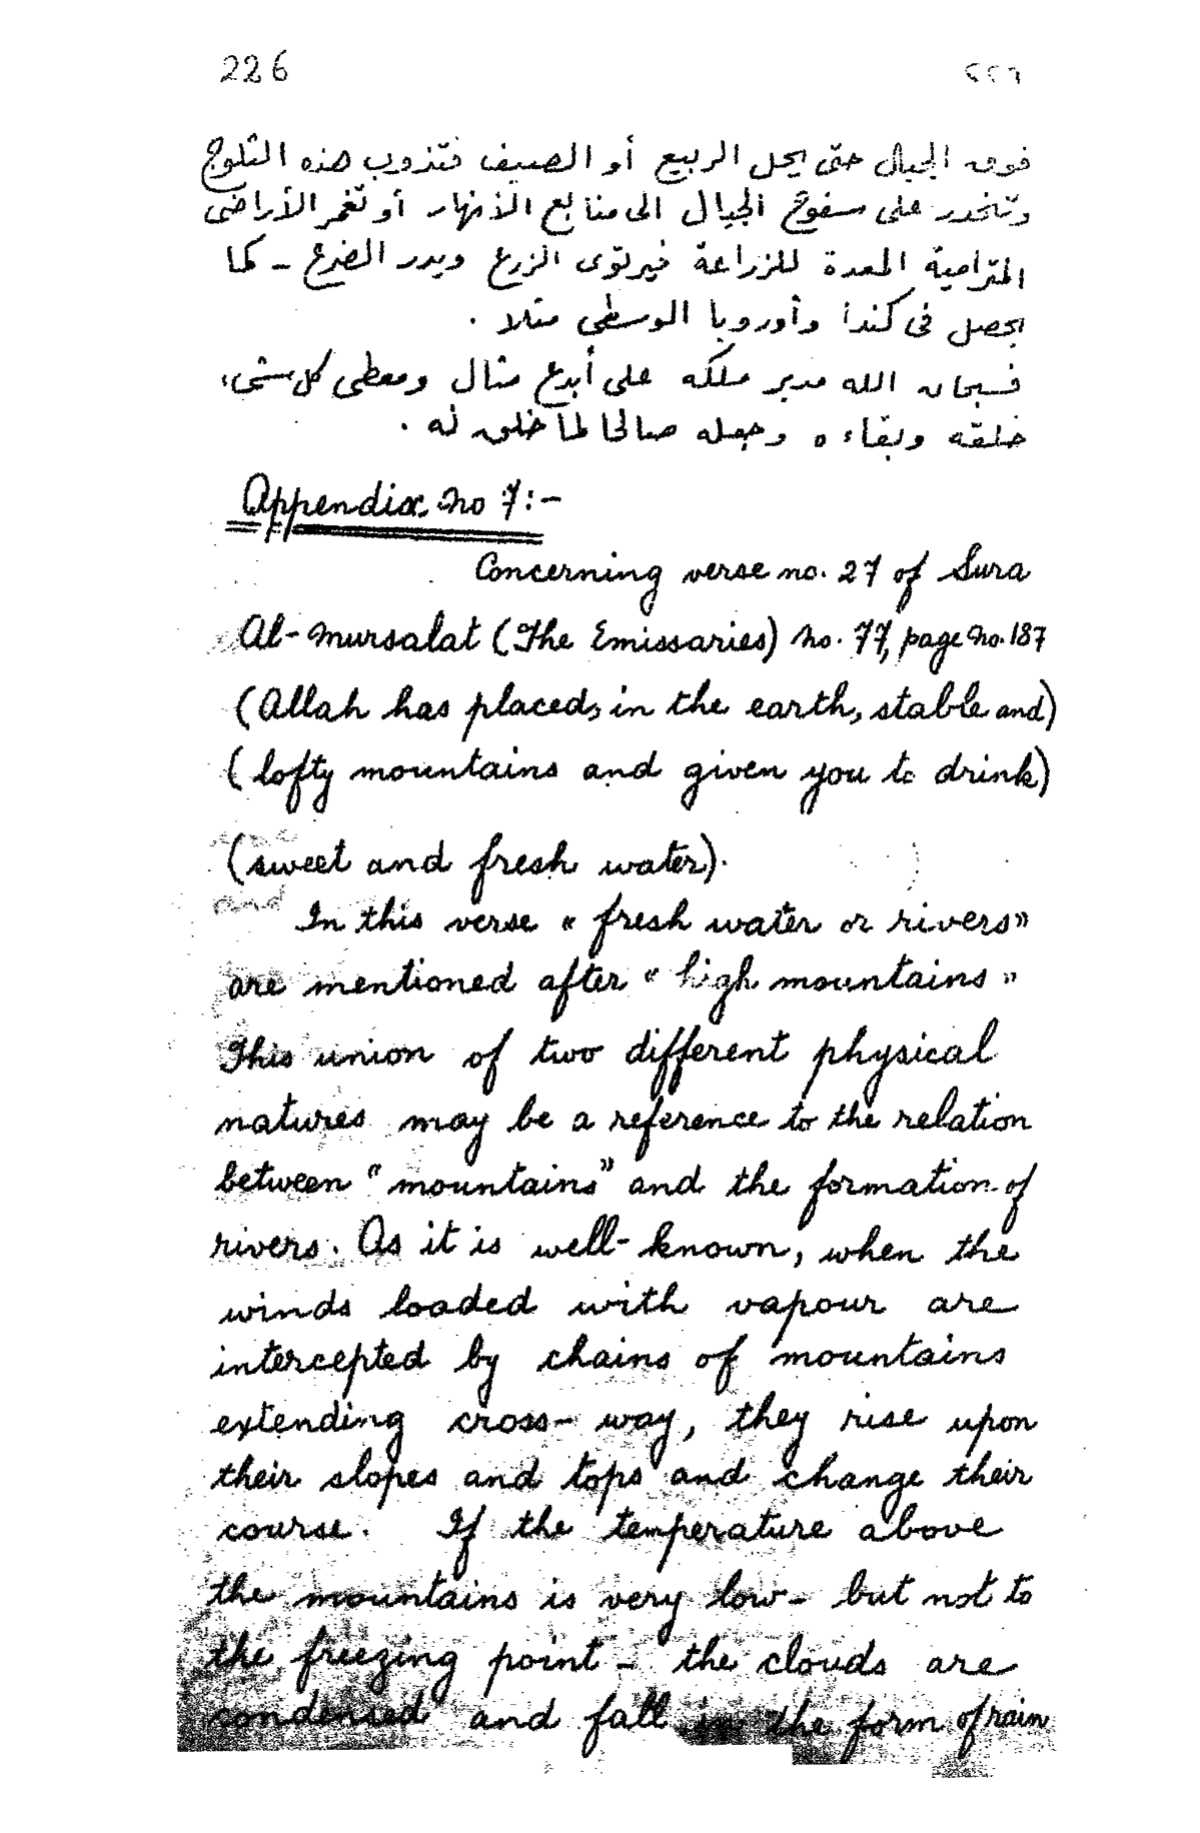 226 ٢٢٦
فوق الجبال حتى يحل الربيع أو الصيف فتذوب هذه الثلوج
وتنحدر على سفوح الجبال الى منابع الأنهار أو تغمر الأراضى
المترامية المعدة للزراعة فيرتوى الزرع ويدر الضرع - كما
يحصل فى كندا وأوروبا الوسطى مثلا .
فسبحان الله مدبر ملكه على أبدع مثال ومعطى كل شىء
خلقه وبقاءه وجعله صالحا لما خلق له .
Appendix no 7:-
Concerning verse no. 27 of Sura
Al-Mursalat (The Emissaries) no. 77, page no. 187
(Allah has placed, in the earth, stable and)
(lofty mountains and given you to drink)
(sweet and fresh water).
and
In this verse « fresh water or rivers»
are mentioned after « high mountains »
This union of two different physical
natures may be a reference to the relation
between “mountains” and the formation of
rivers. As it is well-known, when the
winds loaded with vapour are
intercepted by chains of mountains
extending cross-way, they rise upon
their slopes and tops and change their
course. If the temperature above
the mountains is very low - but not to
the freezing point - the clouds are
condensed and fall in the form of rain